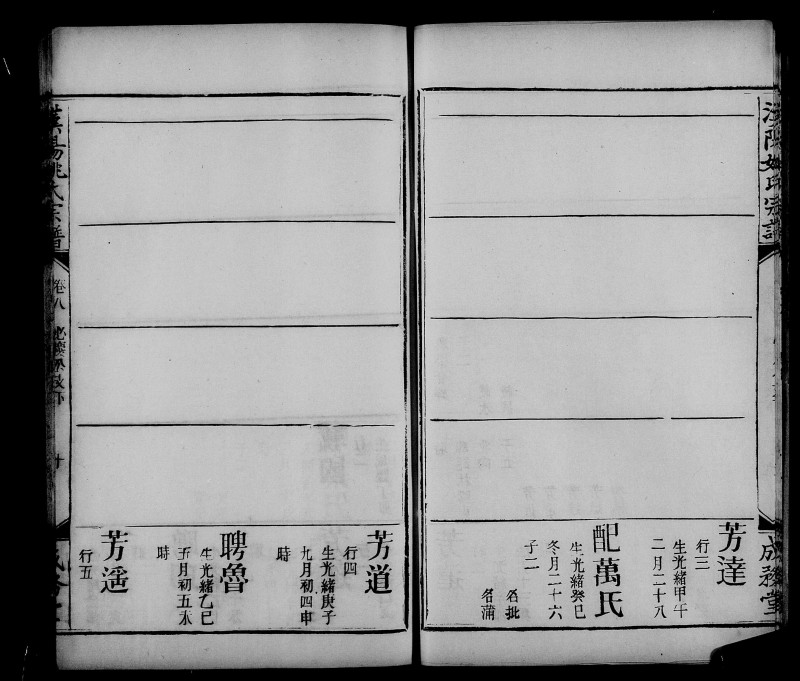 芳達
行三
生光緒甲午
二月二十八
配萬氏
生光緒癸巳
冬月二十六
子二
名批
名蒲
芳道
行四
生光緒庚子
九月初四申
時
聘魯
生光緒乙巳
五月初五水
時
芳遥
行五
漢陽姚氏宗譜
卷八
十